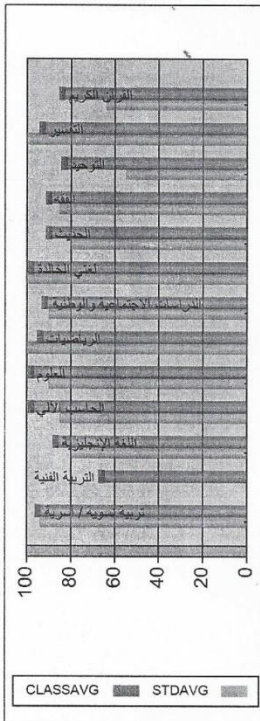 القران الكريم
التفسير
التوحيد
الفقه
الحديث
لغتي الخالدة
الدراسات الاجتماعية والوطنية
الرياضيات
العلوم
الحاسب الالي
اللغة الإنجليزية
التربية الفنية
تربية نسوية / اسرية
100 80 60 40 20 0
CLASSAVG STDAVG